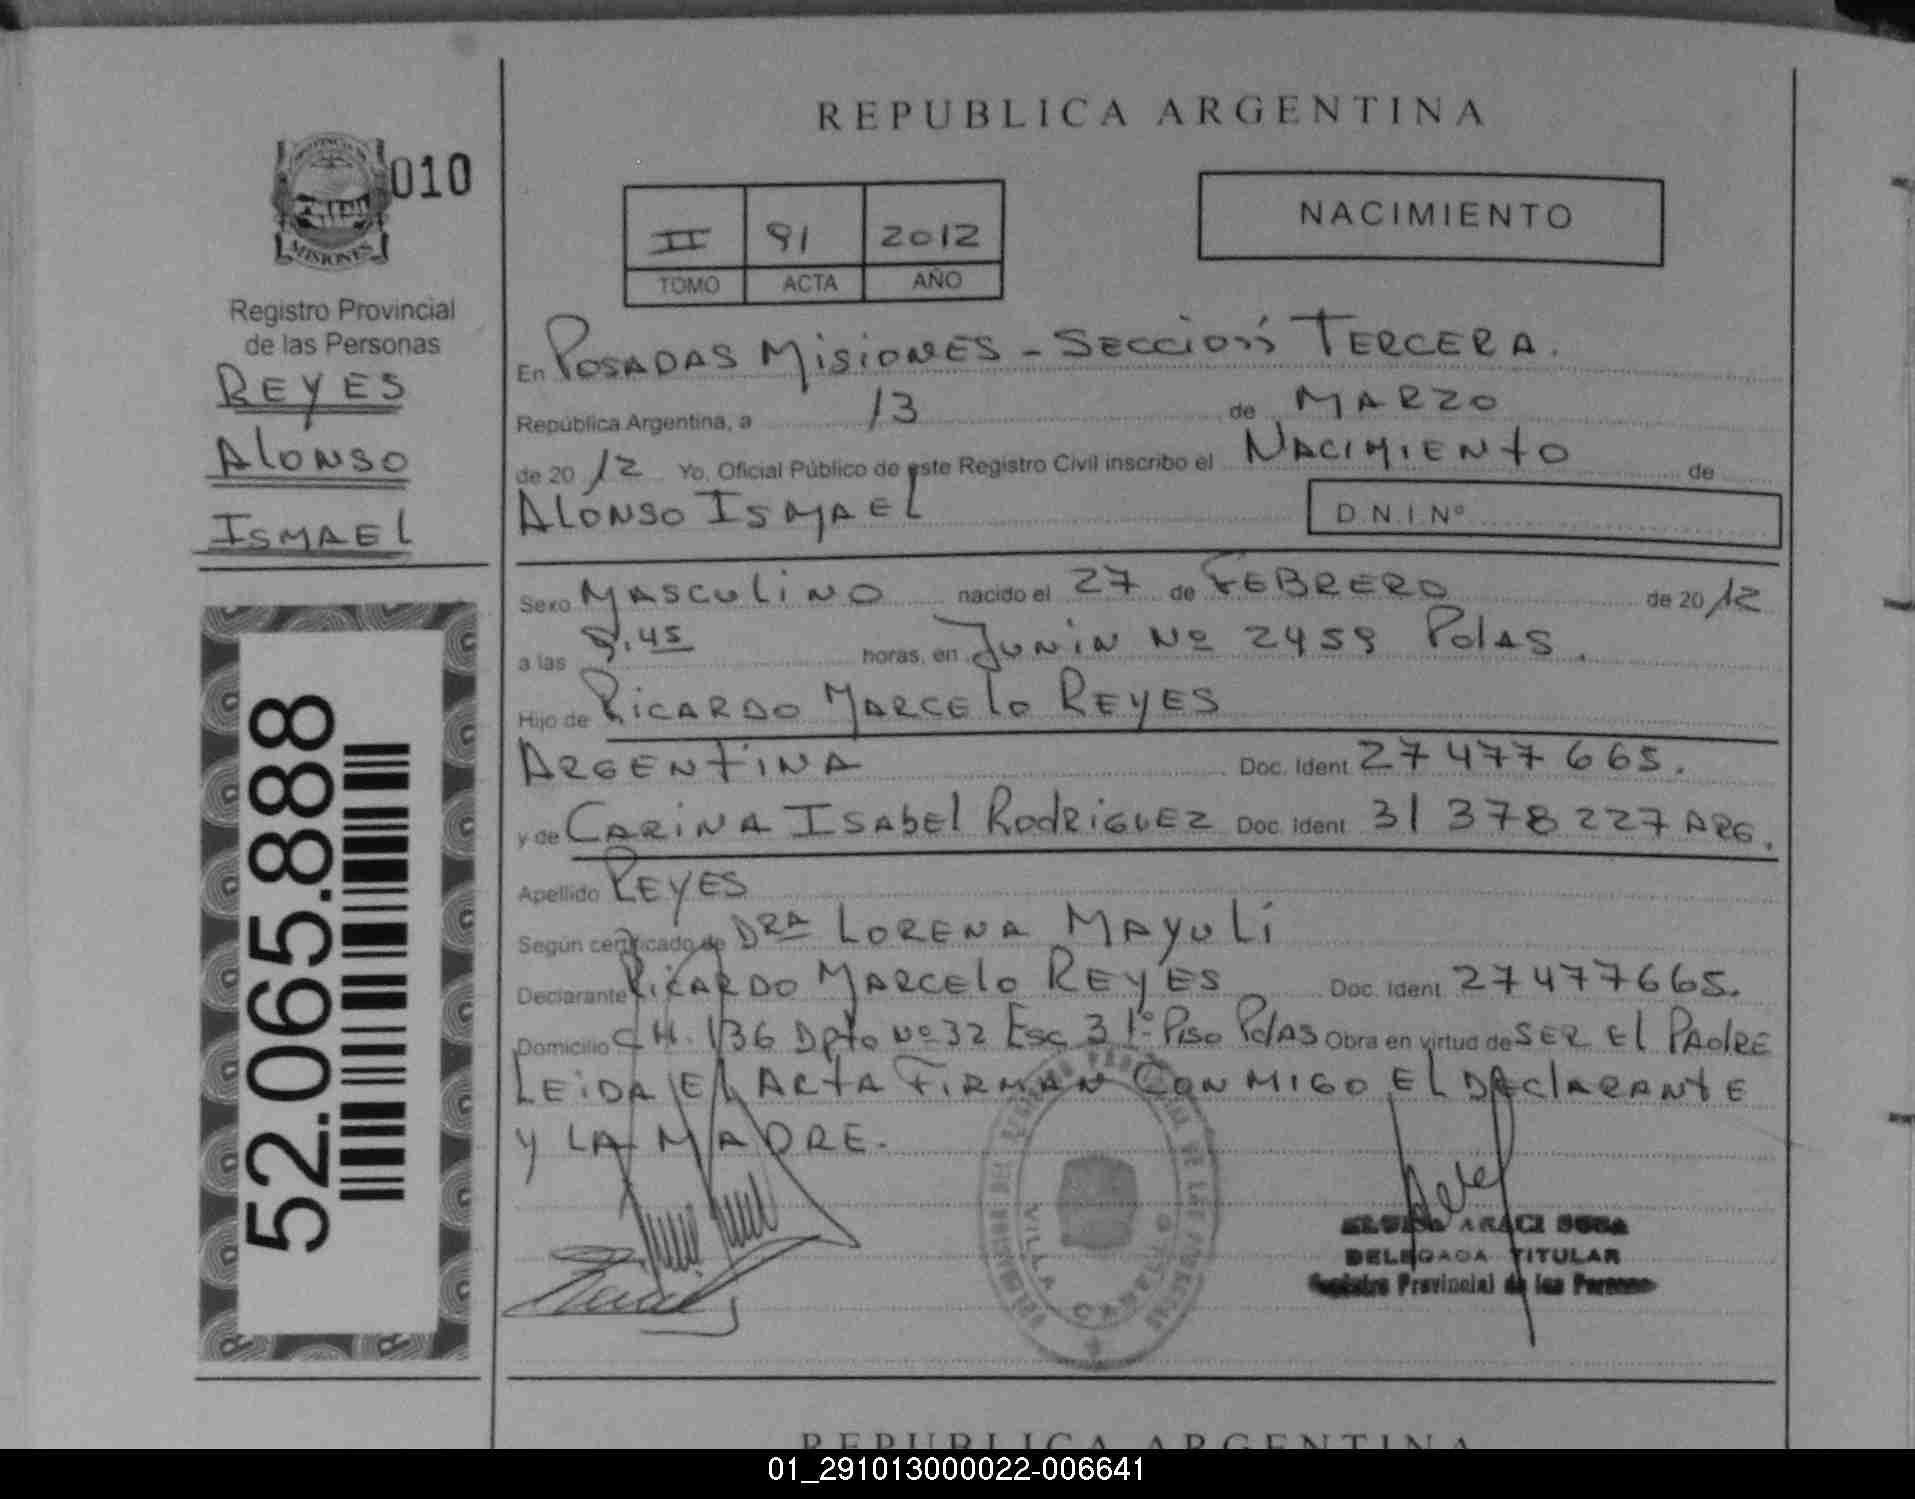 REPUBLICA ARGENTINA
PROVINCIA DE
MISIONES
010
Registro Provincial
de las Personas
REYES
Alonso
ISMAEL
52.065.888
II 91 2012
TOMO ACTA AÑO
NACIMIENTO
En POSADAS MisionES - SEccion TERCERA.
República Argentina, a 13 de MARZO
de 20 12 Yo, Oficial Público de este Registro Civil inscribo el NACIMIENto de
Alonso ISMAEL D.N.I. Nº
Sexo MAsculino nacido el 27 de FEBRERO de 20 12
a las 9.45 horas, en Junin Nº 2459 PdAS.
Hijo de RicARDo MARCElo REYES
ARGENtiNA Doc. Ident 27 477 665.
y de CARiNA ISAbEl RodRiGUEZ Doc. Ident 31 378 227 ARG.
Apellido REYES
Según certificado de DRA LORENA MAYULi
Declarante RiCARDO MARCElo REYES Doc. Ident 27477665.
Domicilio CH. 136 Dpto Nº 32 Esc 3 1º Piso PdAS Obra en virtud de SER El PAdRE
LEiDA El ACtA FiRMAN CONMIGO El DEClARANtE
y LA MADRE.
REGISTRO PROVINCIAL DE LAS PERSONAS
VILLA CABELLO
ARACI SOSA
DELEGADA TITULAR
Registro Provincial de las Personas
REPUBLICA ARGENTINA
01_291013000022-006641